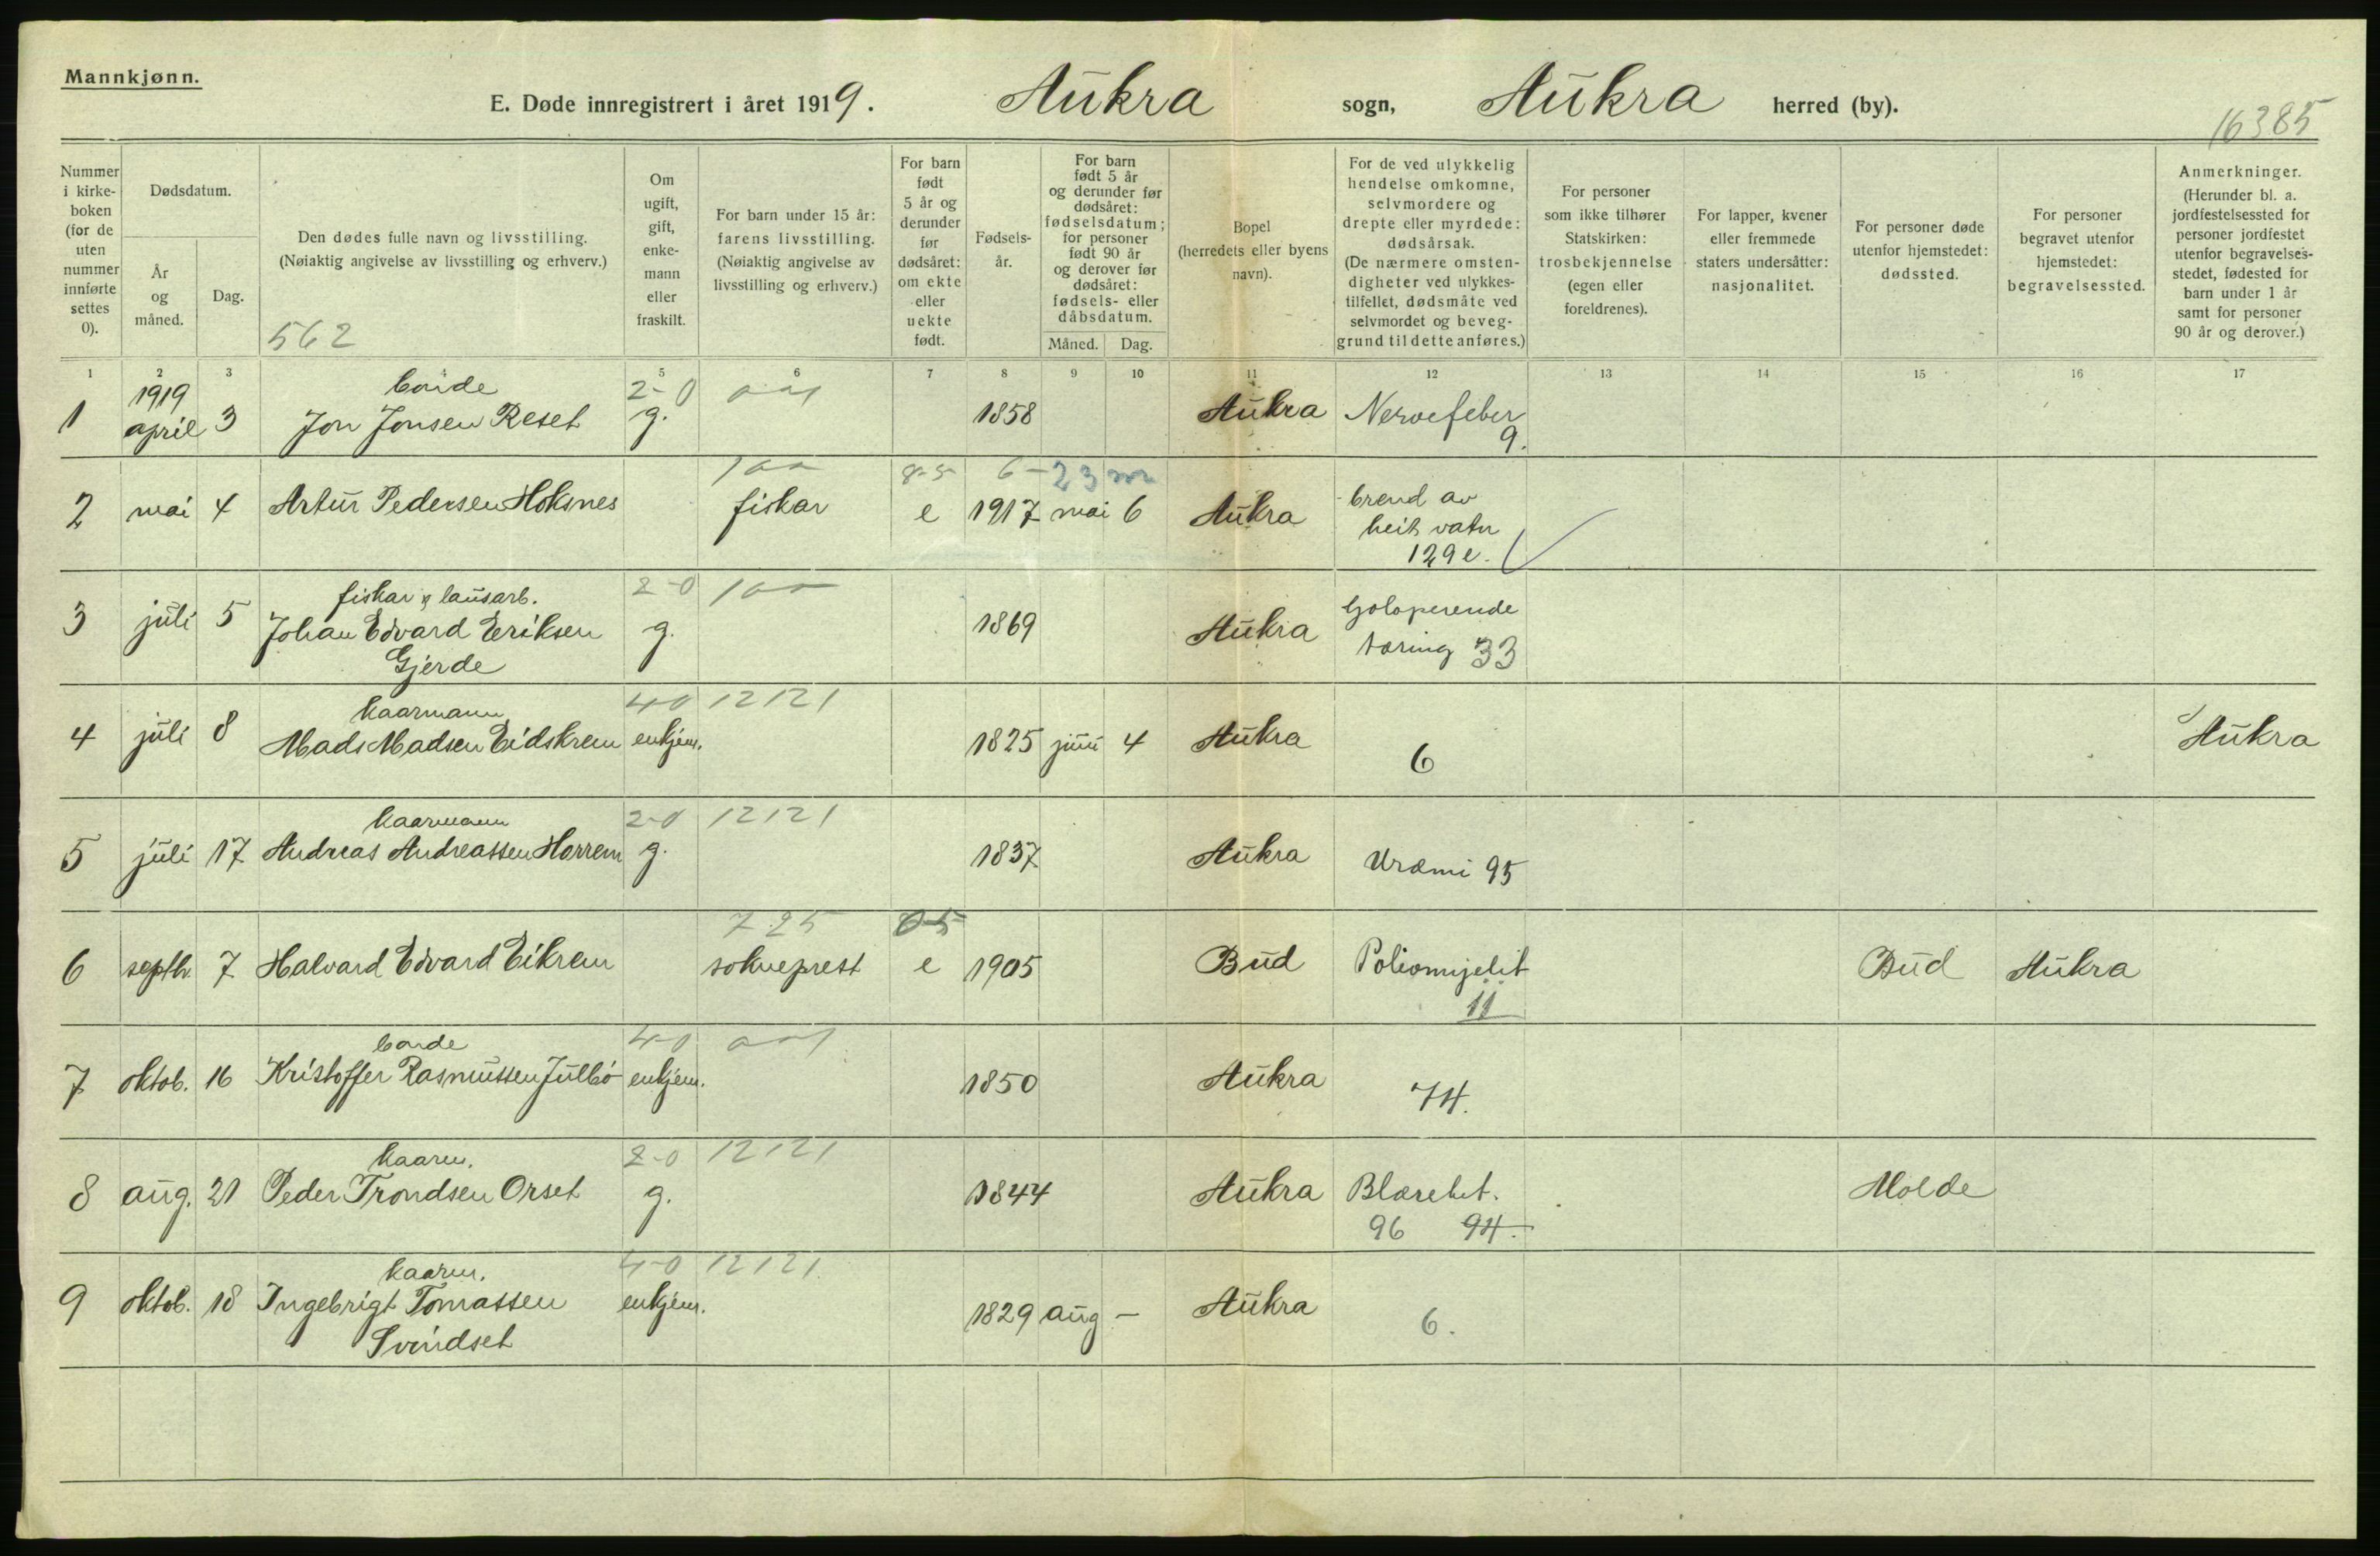 Mannkjønn.
E. Døde innregistrert i året 1919. Aukra sogn, Aukra herred (by).
16385
Nummer i kirke-boken (for de uten nummer innførte settes 0).
Dødsdatum.
År og måned.
Dag.
Den dødes fulle navn og livsstilling.
(Nøiaktig angivelse av livsstilling og erhverv.)
562
Om ugift, gift, enke-mann eller fraskilt.
For barn under 15 år: farens livsstilling.
(Nøiaktig angivelse av livsstilling og erhverv.)
For barn født 5 år og derunder før dødsåret: om ekte eller uekte født.
Fødsels-år.
For barn født 5 år og derunder før dødsåret: fødselsdatum; for personer født 90 år og derover før dødsåret: fødsels- eller dåbsdatum.
Måned. Dag.
Bopel
(herredets eller byens navn).
For de ved ulykkelig hendelse omkomne, selvmordere og drepte eller myrdede: dødsårsak.
(De nærmere omsten-digheter ved ulykkes-tilfellet, dødsmåte ved selvmordet og beveg-grund til dette anføres.)
For personer som ikke tilhører Statskirken: trosbekjennelse (egen eller foreldrenes).
For lapper, kvener eller fremmede staters undersåtter: nasjonalitet.
For personer døde utenfor hjemstedet: dødssted.
For personer begravet utenfor hjemstedet: begravelsessted.
Anmerkninger.
(Herunder bl. a. jordfestelsessted for personer jordfestet utenfor begravelses-stedet, fødested for barn under 1 år samt for personer 90 år og derover.)
1 2 3 4 5 6 7 8 9 10 11 12 13 14 15 16 17
1919 bonde 2-0
1 april 3 Jon Jonsen Reset g. 1858 Aukra Nervefeber
9.
100 6-23 m
2 mai 4 Artur Pedersen Hoksnes fiskar e 1917 mai 6 Aukra brend av
heit vatn
129e.
fiskar & lausarb. 2-0 100
3 juli 5 Johan Edvard Eriksen g. 1869 Aukra Galoperende
Gjerde tæring 33
kaarmann 4-0 12121
4 juli 8 Mads Madsen Eidskrem enkjem. 1825 juni 4 Aukra 6 Aukra
kaarmann 2-0 12121
5 juli 17 Andreas Andreassen Horrem g. 1837 Aukra Uræmi 95
725 0-5
6 septb. 7 Halvard Edvard Eikrem sokneprest e 1905 Bud Poliomyelit Bud Aukra
11
bonde 4-0
7 oktob. 16 Kristoffer Rasmussen Julbø enkjem. 1850 Aukra 74.
kaarm. 2-0 12121
8 aug. 21 Peder Trondsen Orset g. 1844 Aukra Molde
96 94.
kaarm. 4-0 12121
9 oktob. 18 Ingebrigt Tomassen enkjem. 1829 aug – Aukra 6.
Svindset